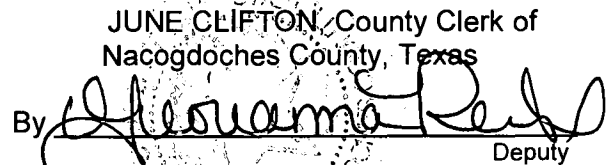 JUNE CLIFTON, County Clerk of
Nacogdoches County, Texas
By Giovanna
Deputy